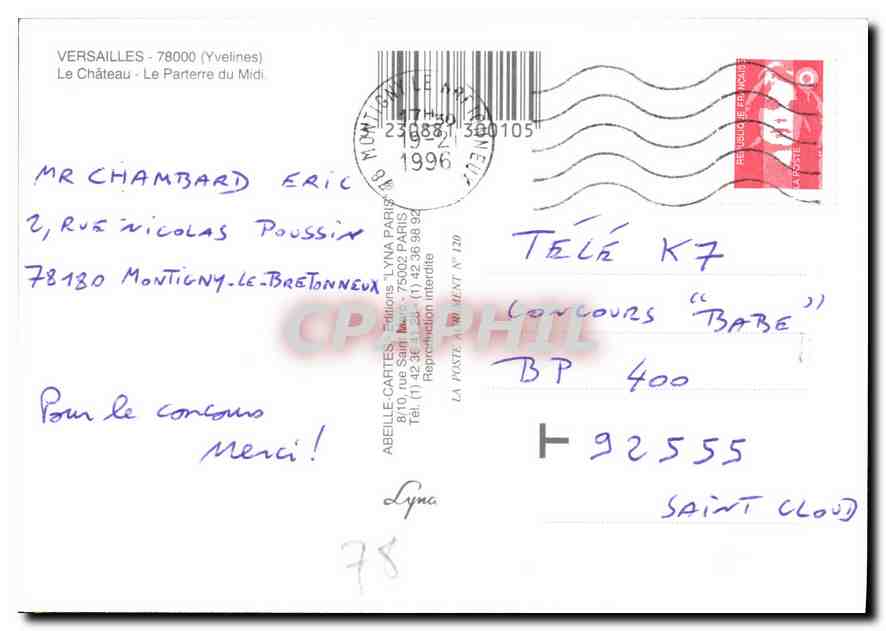 VERSAILLES - 78000 (Yvelines)
Le Château - Le Parterre du Midi.
MR CHAMBARD ERIC
2, RUE NICOLAS POUSSIN
78180 MONTIGNY-LE-BRETONNEUX
Pour le concours
Merci!
78
230881 300105
78 MONTIGNY LE BRETONNEUX
17H30
19-2
1996
REPUBLIQUE FRANÇAISE
LA POSTE
ABEILLE-CARTES, Editions "LYNA PARIS"
8/10, rue Saint - 75002 PARIS
Tél. (1) 42 36 41 28 - (1) 42 36 98 92
Reproduction interdite
LA POSTE AGREMENT N° 120
Lyna
CPAPHIL
TÉLÉ K7
CONCOURS "BABE"
BP 400
T 92555
SAINT CLOUD